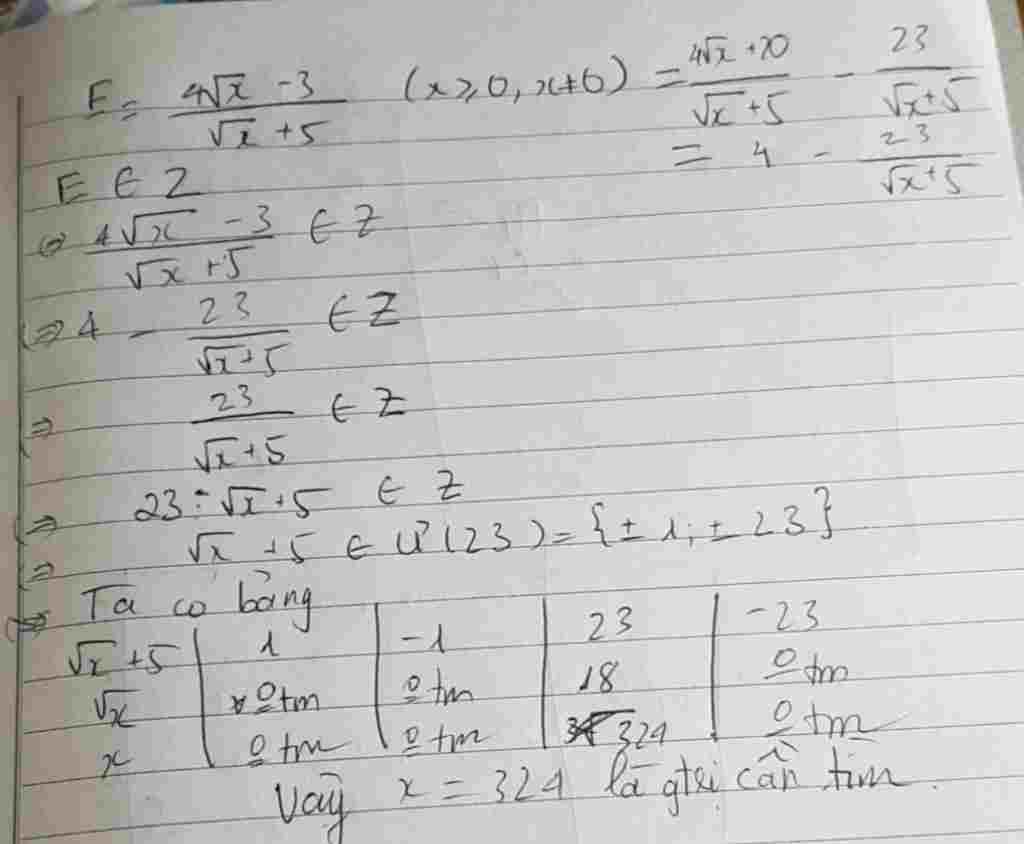 E = (4√x - 3)/(√x + 5) (x ≥ 0, x ≠ 6) = (4√x + 20)/(√x + 5) - 23/(√x + 5)
= 4 - 23/(√x + 5)
E ∈ Z
⇔ (4√x - 3)/(√x + 5) ∈ Z
⇔ 4 - 23/(√x + 5) ∈ Z
⇔ 23/(√x + 5) ∈ Z
⇔ 23 ⋮ √x + 5 ∈ Z
⇔ √x + 5 ∈ Ư(23) = {± 1; ± 23}
⇔ Ta có bảng
√x + 5 | 1 | -1 | 23 | -23
√x | 0 tm | 0 tm | 18 | 0 tm
x | 0 tm | 0 tm | 324 | 0 tm
Vậy x = 324 là gtrị cần tìm.